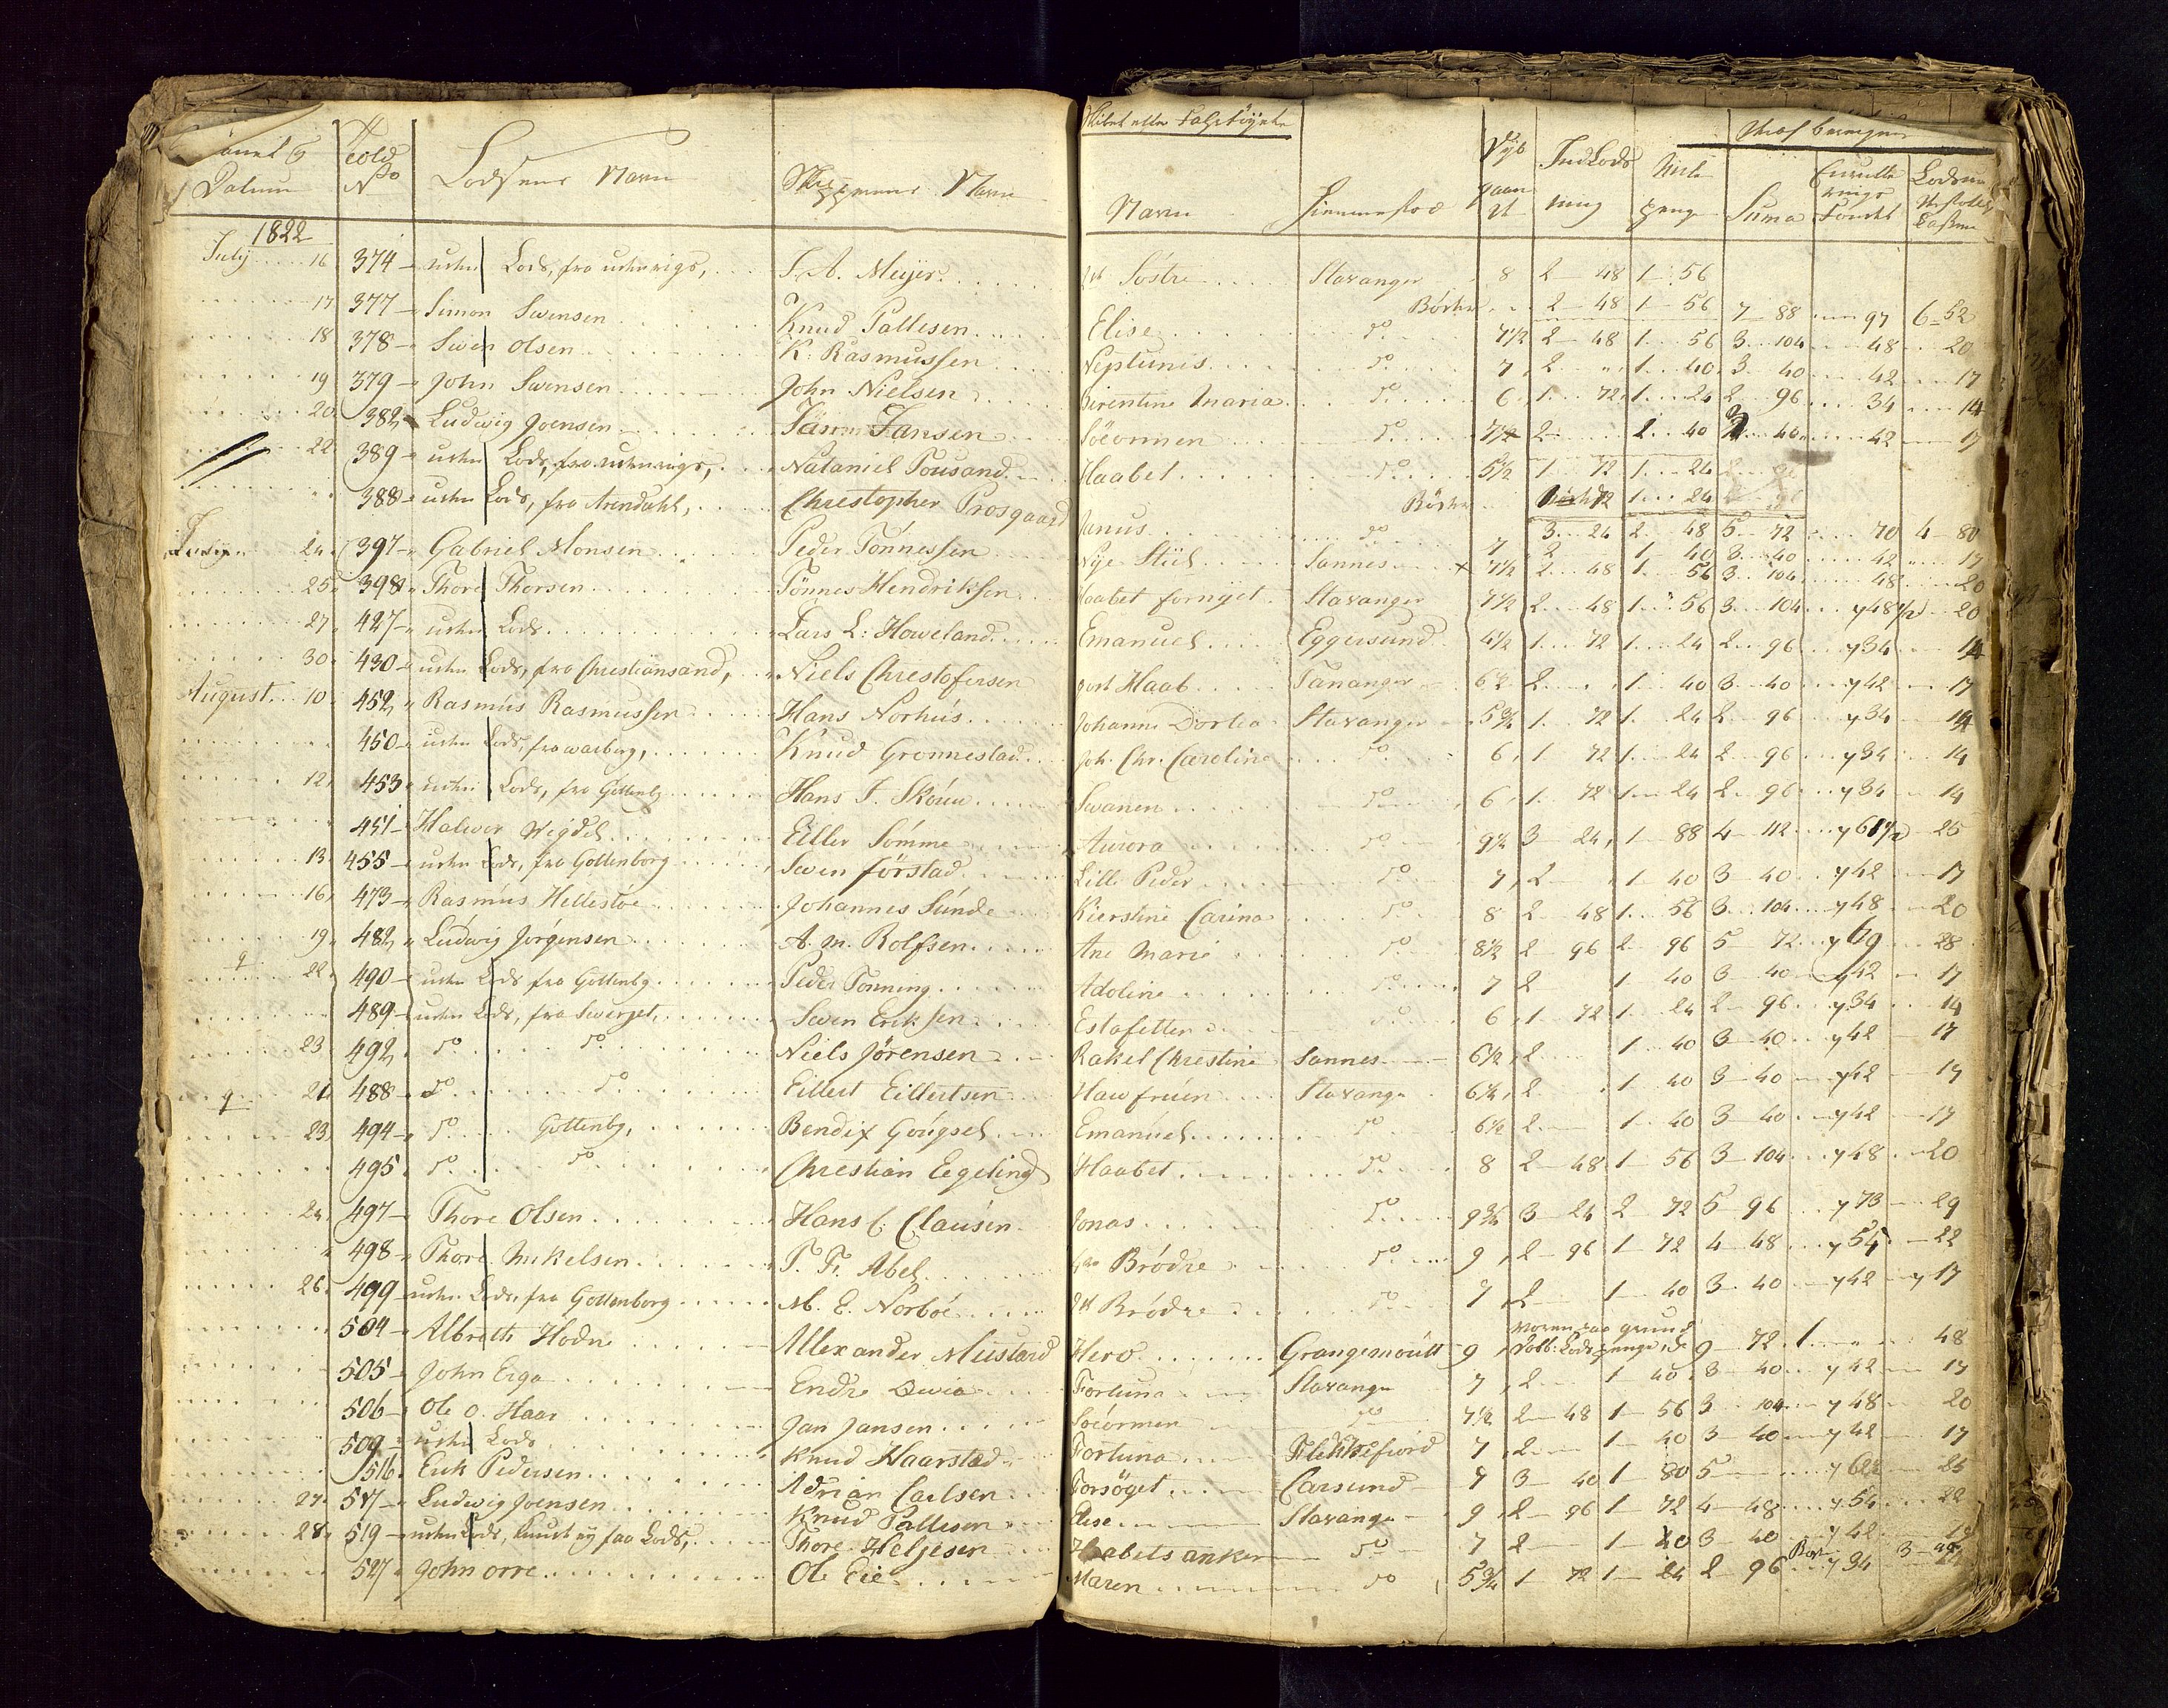 Datum
Told No
Lodsens Navn
Skippernes Navn
Navn
Hiemmestæd
Dyb gaaen
Ind Lods ning
penge
Suma
Lodsens
1822
July 16 374 uden Lods, fra udenrigs, S. A. Meyer Søstre Stavanger 8 2 48 1 56
Börten 2 48 1 56 7 88 97 6 52
17 377 Simon Swensen Knud Pallesen Elise do 7 1/2 2 48 1 56 3 104 48 20
18 378 Swen Olsen K. Rasmussen Neptunis do 7 2 1 40 3 40 42 17
19 379 John Swensen John Nielsen Birentine Maria do 6 1 72 1 24 2 96 34 14
20 382 Ludwig Joensen Jansen Söeormen do 7 1/2 2 40 40 42 17
22 389 uden Lods, fra udenrigs, Nataniel Tousand Haabet do 5 1/2 1 72 1 24
Börten 72 1 24
388 uden Lods, fra Arendahl, Christopher Prosgaard Janus do 3 24 2 48 5 72 70 4 80
7 2 1 40 3 40 42 17
July 24 397 Gabriel Monsen Peder Tönnessen Nye Stiil Sannes 7 1/2 2 48 1 56 3 104 48 20
25 398 Thore Thorsen Tönnes Hendriksen Haabet fornyet Stavanger 7 1/2 2 48 1 56 3 104 48 1/2 20
27 427 uden Lods Lars L: Howeland Emanuel Eggersund 4 1/2 1 72 1 24 2 96 34 14
30 430 uden Lods, fra Christiansand, Niels Christofersen godt Haab Tananger 6 1/2 2 1 40 3 40 42 17
August 10 452 Rasmus Rasmussen Hans Norhus Johanne Dortea Stavanger 5 3/4 1 72 1 24 2 96 34 14
450 uden Lods, fra warberg, Knud Gronnestad Joh. Chr. Caroline do 6 1 72 1 24 2 96 34 14
12 453 uden Lods, fra Gottenbg Hans J. Skören Swanen do 6 1 72 1 24 2 96 34 14
451 Halwor Wigdel Eiller Sömme Aurora do 9 1/2 3 24 1 88 4 112 61 1/2 25
13 455 uden Lods, fra Gottenborg Swen förstad Lille Peder do 7 2 1 40 3 40 42 17
16 473 Rasmus Hellestöe Johannes Sunde Kierstine Carina do 8 2 48 1 56 3 104 48 20
19 482 Ludwig Jörgensen A. M. Rolfsen Ane Marie do 8 1/2 2 96 2 96 5 72 69 28
22 490 uden Lods fra Gottenbg Peder Tonning Adoline do 7 2 1 40 3 40 42 17
489 uden Lods, fra Swerget, Swen Eriksen Estafetten do 6 1 72 1 24 2 96 34 14
23 492 do do Niels Jörensen Rakel Chrestine Sannes 6 1/2 2 1 40 3 40 42 17
21 488 do do Eillert Eillertsen Hawfruen Stavanger 6 1/2 2 1 40 3 40 42 17
23 494 do Gottenbg, Bendix Gougsel Emanuel do 6 1/2 2 1 40 3 40 42 17
495 do do Christian Eegeling Haabet do 8 2 48 1 56 3 104 48 20
24 497 Thore Olsen Hans C: Clausen Jonas do 9 3/4 3 24 2 72 5 96 73 29
498 Thore Mikelsen T. Fr. Abel Brödre do 9 2 96 1 72 4 48 54 22
26 499 uden Lods, fra Gottenborg M. E. Norböe Brödre do 7 2 1 40 3 40 42 17
504 Albreth Hodne Allexander Mustard Hero Grangemoutt 9 Dobb: Lodspenge 9 72 1 48
505 John Erga Endre Qwia Fortuna Stavanger 7 2 1 40 3 40 42 17
506 Ole O. Haar Jan Jansen Söeormen do 7 1/2 2 48 1 56 3 104 48 20
509 uden Lods Knud Haarstad Fortuna Flekkefiord 7 2 1 40 3 40 42 17
516 Erik Pedersen Adrian Carlsen Forsöget Carsund 7 3 40 1 80 5 25
27 517 Ludwig Joensen Knud Pallesen Elise Stavanger 9 2 96 1 72 4 48 54 22
28 519 uden Lods, Kunst ey faa Lods, Thore Heljesen Haabets anker do 7 2 1 40 3 40 42 17
527 John Orre Ole Eie Maren do 5 3/4 1 72 1 24 2 96 34